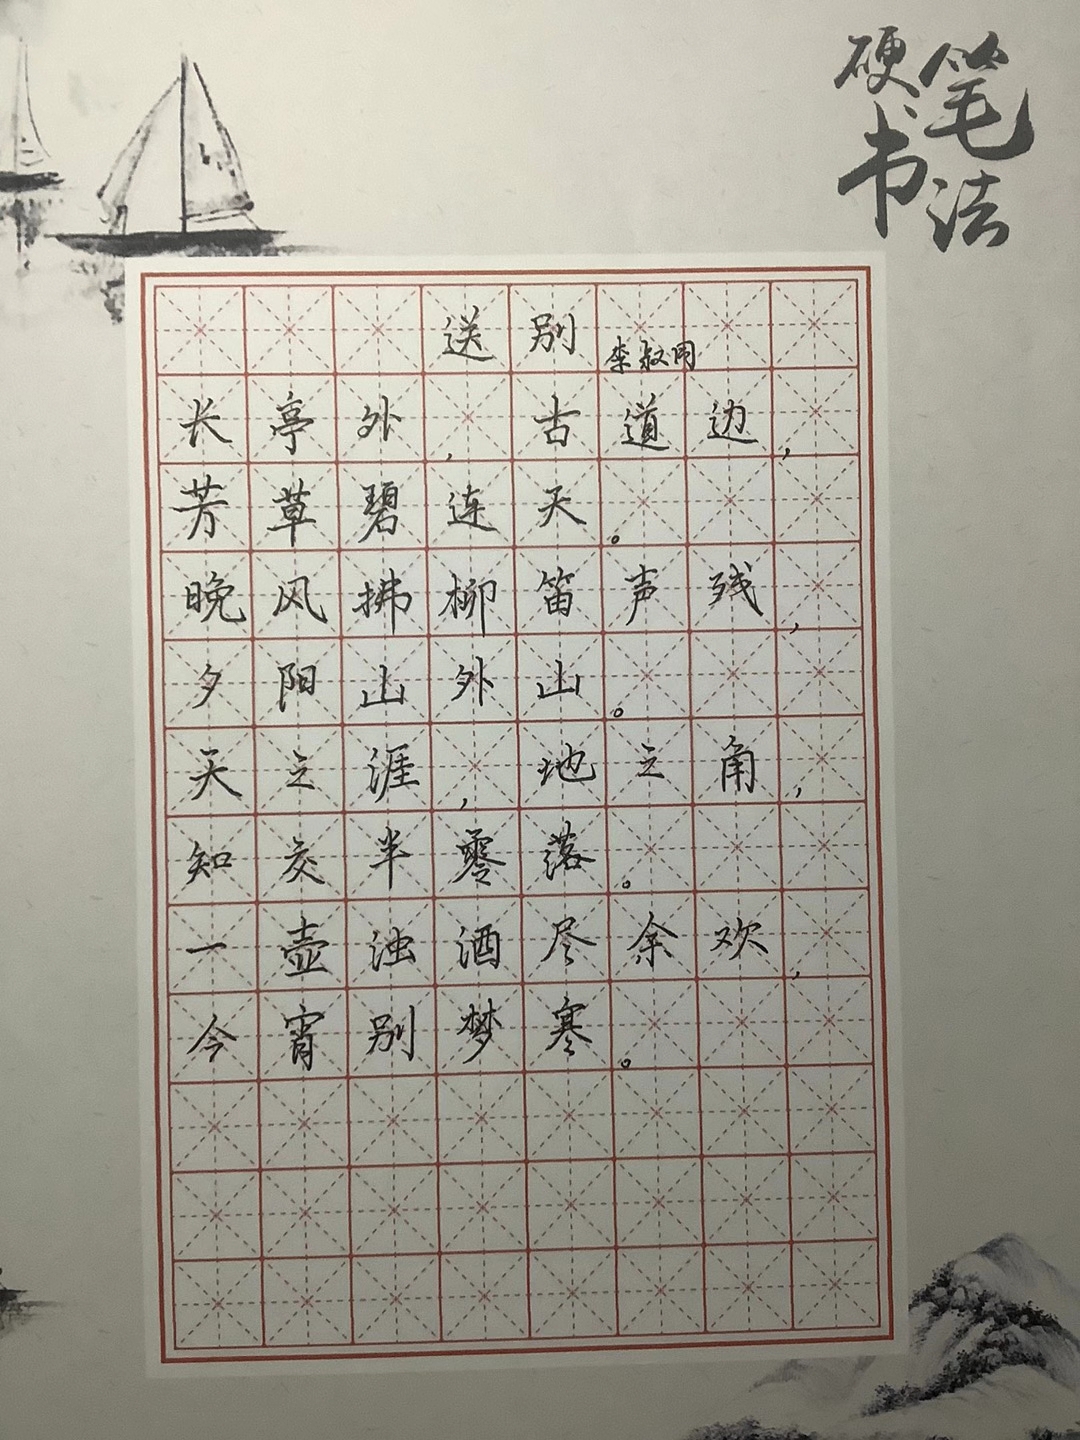 硬笔书法
送别 李叔同
长亭外，古道边，
芳草碧连天。
晚风拂柳笛声残，
夕阳山外山。
天之涯，地之角，
知交半零落。
一壶浊酒尽余欢，
今宵别梦寒。